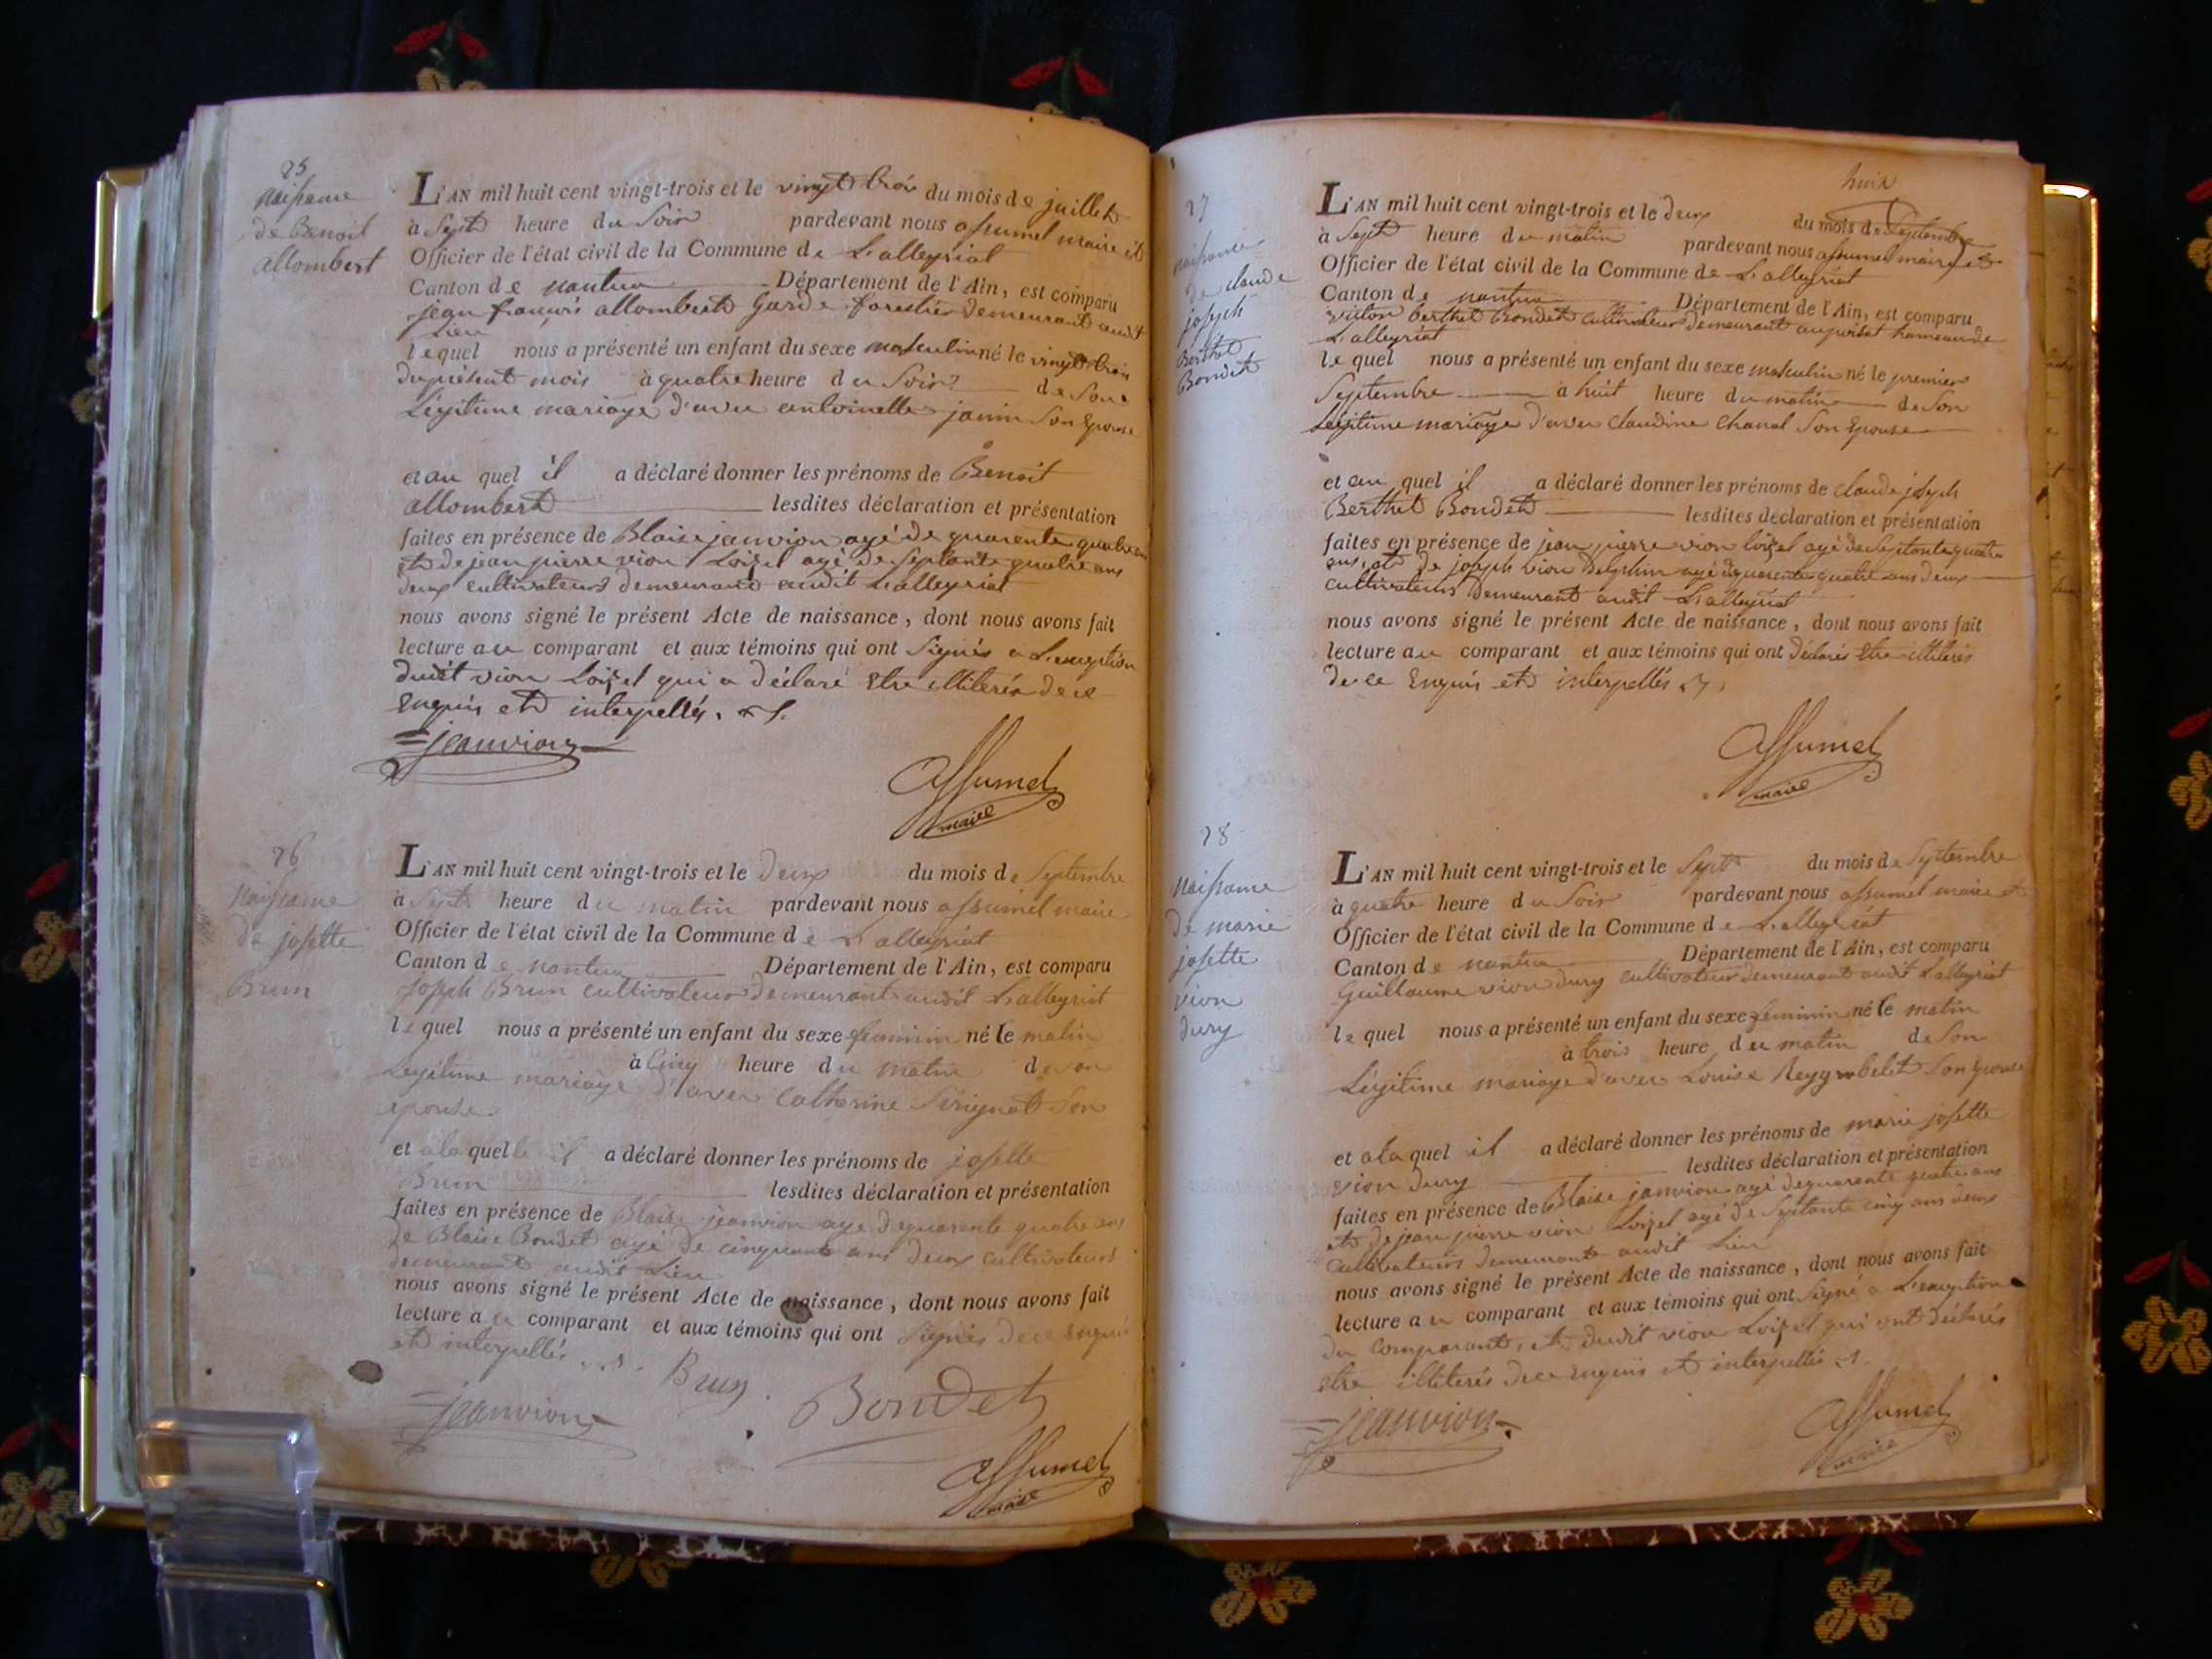 25
naissance
de Benoit
allombert
L'AN mil huit cent vingt-trois et le vingt trois du mois de juillet
à Sept heure du Soir pardevant nous assumel maire et
Officier de l'état civil de la Commune de Lalleyriat
Canton de nantua Département de l'Ain, est comparu
jean françois allombert Garde forestier demeurant audit
Lieu
lequel nous a présenté un enfant du sexe masculin né le vingt trois
du présent mois à quatre heure du Soir de Son
Légitime mariage d'avec antoinette janin Son Epouse
et au quel il a déclaré donner les prénoms de Benoit
allombert lesdites déclaration et présentation
faites en présence de Blaise janvion agé de quarente quatre ans
et de jean pierre vion Loizel agé de Septante quatre ans
deux cultivateurs demeurant audit Lalleyriat
nous avons signé le présent Acte de naissance, dont nous avons fait
lecture au comparant et aux témoins qui ont Signés a L'exeption
dudit vion Loizel qui a déclaré Etre illiterés de ce
Enquis et interpellés.
jeanvion
assumel
maire
26
naissance
de josette
Brun
L'AN mil huit cent vingt-trois et le Deux du mois de Septembre
à Sept heure du matin pardevant nous assumel maire
Officier de l'état civil de la Commune de Lalleyriat
Canton de nantua Département de l'Ain, est comparu
joseph Brun cultivateur demeurant audit Lalleyriat
lequel nous a présenté un enfant du sexe feminin né le matin
à Cinq heure du matin de son
Legitime mariage d'avec Catherine Sérignat Son
epouse
et a la quelle il a déclaré donner les prénoms de josette
Brun lesdites déclaration et présentation
faites en présence de Blaise jeanvion agé de quarente quatre ans
de Blaise Bondet agé de cinquante ans deux cultivateurs
demeurant audit Lieu
nous avons signé le présent Acte de naissance, dont nous avons fait
lecture au comparant et aux témoins qui ont Signés de ce Enquis
et interpellés
Brun
jeanvion
Bondet
assumel
maire
huit
27
naissance
de claude
joseph
Berthet
Bondet
L'AN mil huit cent vingt-trois et le deux du mois de Septembre
à Sept heure du matin pardevant nous assumel maire et
Officier de l'état civil de la Commune de Lalleyriat
Canton de nantua Département de l'Ain, est comparu
berthet Bondet cultivateur demeurant au hameau de
Lalleyriat
lequel nous a présenté un enfant du sexe masculin né le premier
Septembre à huit heure du matin de Son
Légitime mariage d'avec claudine chanal Son Epouse
et au quel il a déclaré donner les prénoms de claude joseph
Berthet Bondet lesdites déclaration et présentation
faites en présence de jean pierre vion loizel agé de septante quatre
ans, et de joseph vion Delphin agé de quarente quatre ans deux
cultivateurs demeurant audit Lalleyriat
nous avons signé le présent Acte de naissance, dont nous avons fait
lecture au comparant et aux témoins qui ont déclarés Etre illiterés
de ce Enquis et interpellés
assumel
maire
28
naissance
de marie
josette
vion
dury
L'AN mil huit cent vingt-trois et le Sept du mois de Septembre
à quatre heure du Soir pardevant nous assumel maire et
Officier de l'état civil de la Commune de Lalleyriat
Canton de nantua Département de l'Ain, est comparu
Guillaume vion dury cultivateur demeurant audit Lalleyriat
lequel nous a présenté un enfant du sexe feminin né le matin
à trois heure du matin de Son
Légitime mariage d'avec Louise Reygrobelet Son Epouse
et a la quel il a déclaré donner les prénoms de marie josette
vion dury lesdites déclaration et présentation
faites en présence de Blaise janvion agé de quarente quatre ans
et de jean pierre vion Loizel agé de Septante cinq ans deux
cultivateurs demeurants audit Lieu
nous avons signé le présent Acte de naissance, dont nous avons fait
lecture au comparant et aux témoins qui ont Signé a L'exeption
du Comparant, et dudit vion Loizel qui ont déclarés
etre illiterés de ce enquis et interpellés
jeanvion
assumel
maire